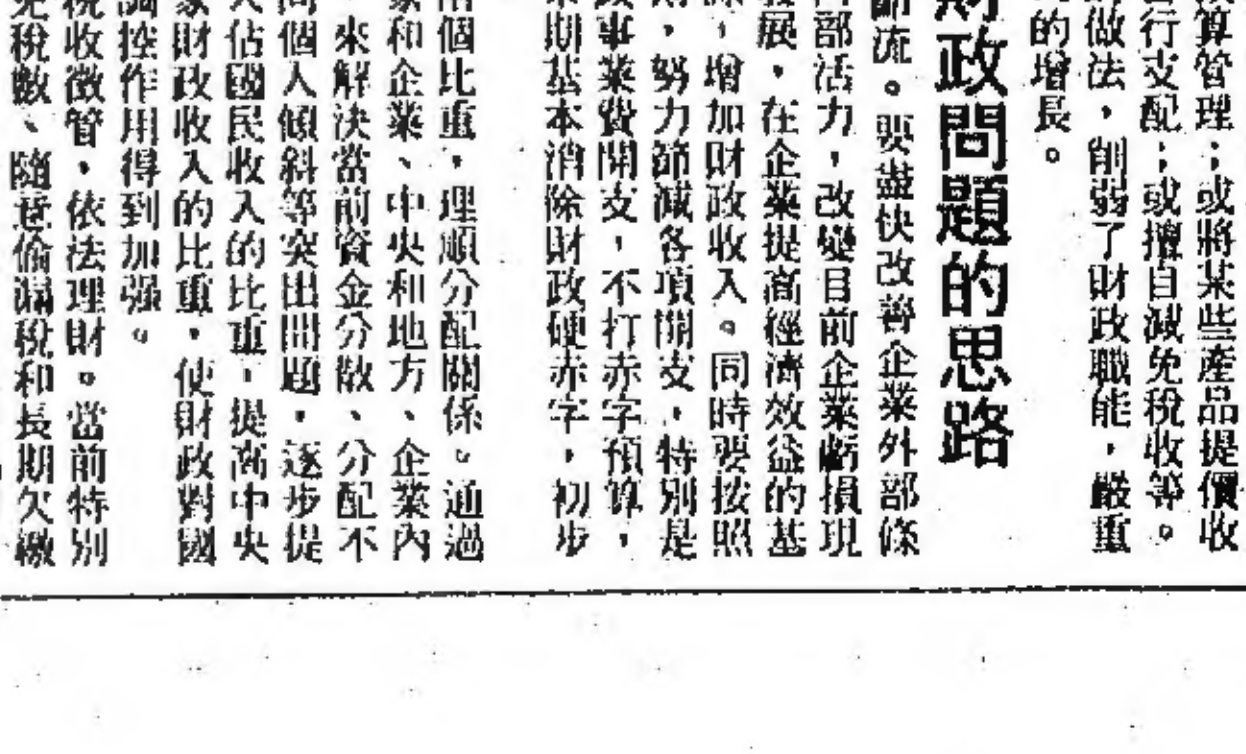 算管理；或將某些產品提價收
行支配；或擅自減免稅收等。
做法，削弱了財政職能，嚴重
的增長。
財政問題的思路
節流。要盡快改善企業外部條
部活力，改變目前企業虧損現
發展，在企業提高經濟效益的基
，增加財政收入。同時要按照
，努力節減各項開支，特別是
事業費開支，不打赤字預算，
期基本消除財政硬赤字，初步
個比重，理順分配關係。通過
家和企業、中央和地方、企業內
，來解決當前資金分散、分配不
向個人傾斜等突出問題，逐步提
入佔國民收入的比重，提高中央
家財政收入的比重，使財政對國
調控作用得到加强。
稅收徵管，依法理財。當前特別
免稅數、隨意偷漏稅和長期欠繳